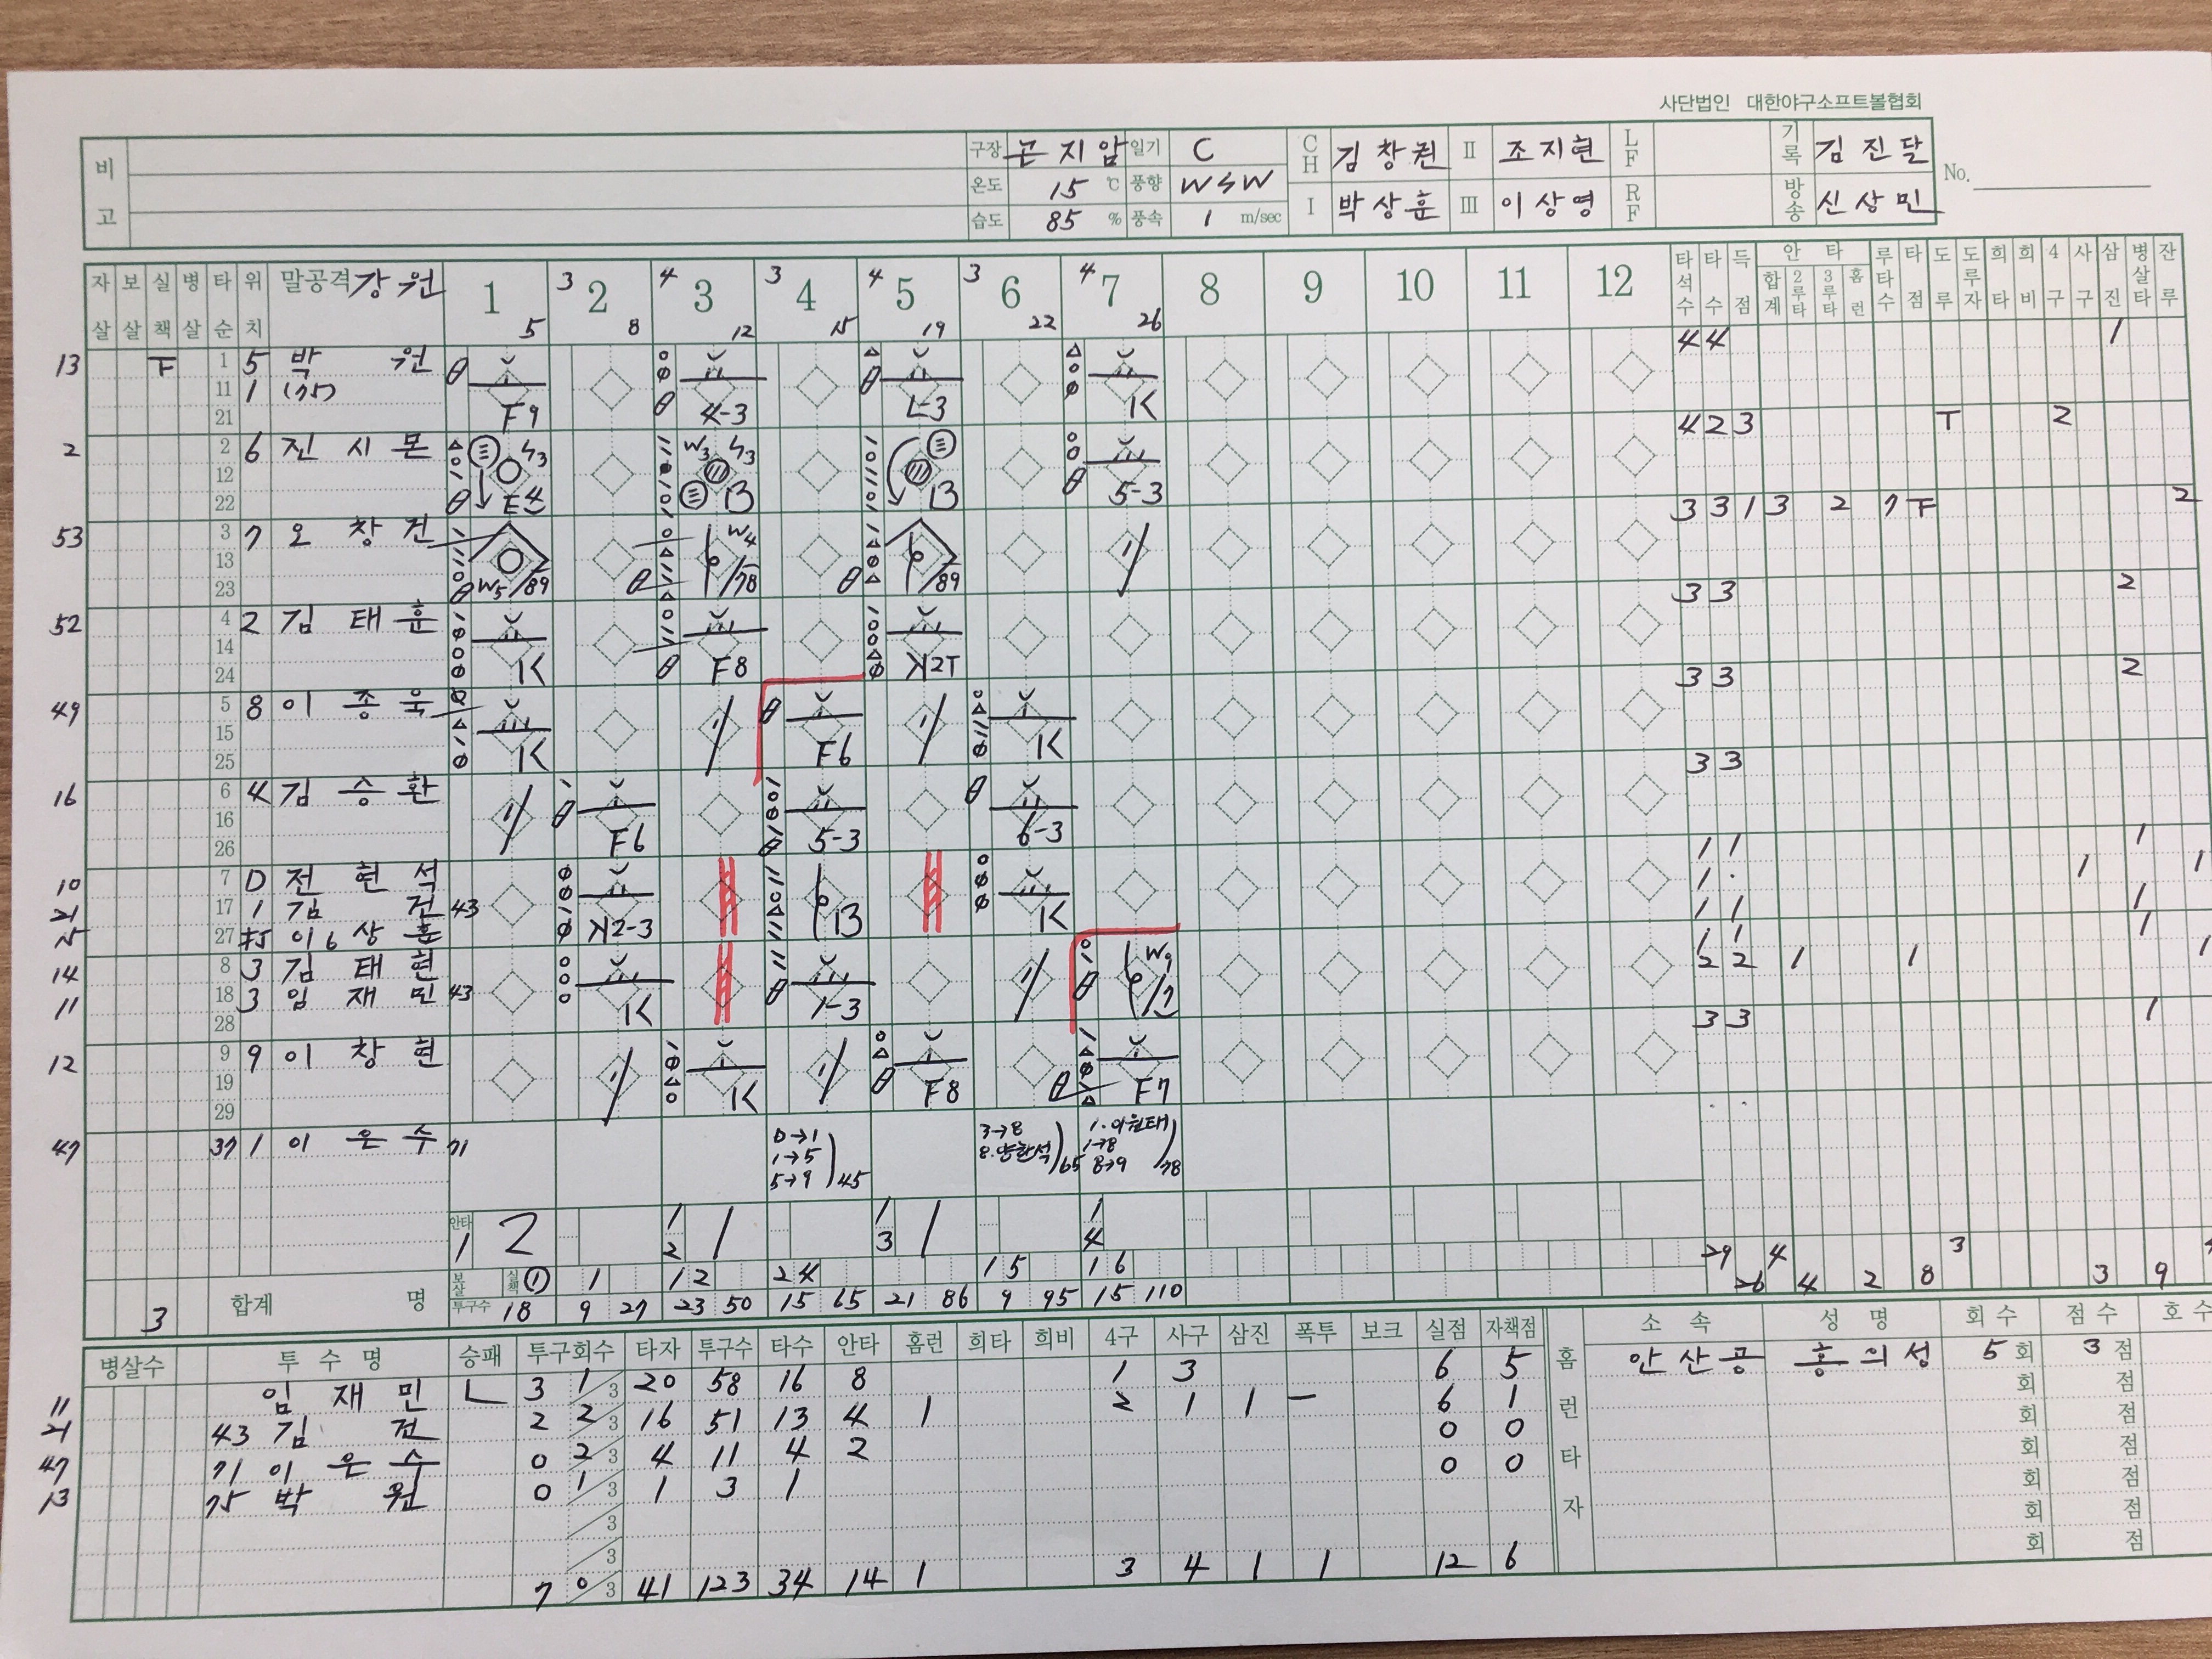 사단법인 대한야구소프트볼협회
비고
구장 곤지암 일기 C CH 김창권 II 조지현 LF 기록 김진달 No.
온도 15 ℃ 풍향 WSW
습도 85 % 풍속 1 m/sec I 박상훈 III 이상영 RF 방송 신상민
자살 보살 실책 병살 타순 위치 말공격 강원 1 2 3 4 5 6 7 8 9 10 11 12 타석수 타수 득점 안타 합계 2루타 3루타 홈런 루타수 타점 도루 도루자 희타 희비 4구 사구 삼진 병살타 잔루
3 4 3 4 3 4
5 8 12 15 19 22 26
13 1 5 박 원 F9 4-3 L-3 K 4 4 1
11 1 (75)
21
2 2 6 진시몬 E4 13 13 5-3 4 2 3 T 2
12
22
53 3 7 오창건 W5 89 W4 78 89 3 3 1 3 2 7 F 2
13
23
52 4 2 김태훈 K F8 K2T 3 3 2
14
24
49 5 8 이종욱 K F6 K 3 3 2
15
25
16 6 4 김승환 F6 5-3 6-3 3 3
16
26
10 7 D 전현석 K2-3 13 K 1 1 1
21 17 1 김 건 43
15 27 이상훈
14 8 3 김태현 K 1-3 W9 2 2 1 1
11 18 3 임재민 43
28
12 9 9 이창현 K F8 F7 3 3 1
19
29
47 37 1 이은수 71
D→1 1→5 5→9 45
3→8 8.양한석 65
1.이원태 1→8 8→9 78
안타 1 2 1 2 1 1 3 1 1 4
보살 실책 1 1 1 2 2 4 1 5 1 6
3 합계 명 투구수 18 9 27 23 50 15 65 21 86 9 95 15 110
29 26 4 4 2 8 3 3 9
병살수 투수명 승패 투구회수 타자 투구수 타수 안타 홈런 희타 희비 4구 사구 삼진 폭투 보크 실점 자책점 홈런타자 소속 성명 회수 점수 호수
11 임재민 L 3 1/3 20 58 16 8 1 3 6 5 안산공 홍의성 5회 3점
21 43 김 건 2 2/3 16 51 13 4 1 2 1 1 6 1 회 점
47 71 이은수 0 2/3 4 11 4 2 0 0 회 점
13 75 박 원 0 1/3 1 3 1 0 0 회 점
3 회 점
3 회 점
7 0/3 41 123 34 14 1 3 4 1 1 12 6 회 점